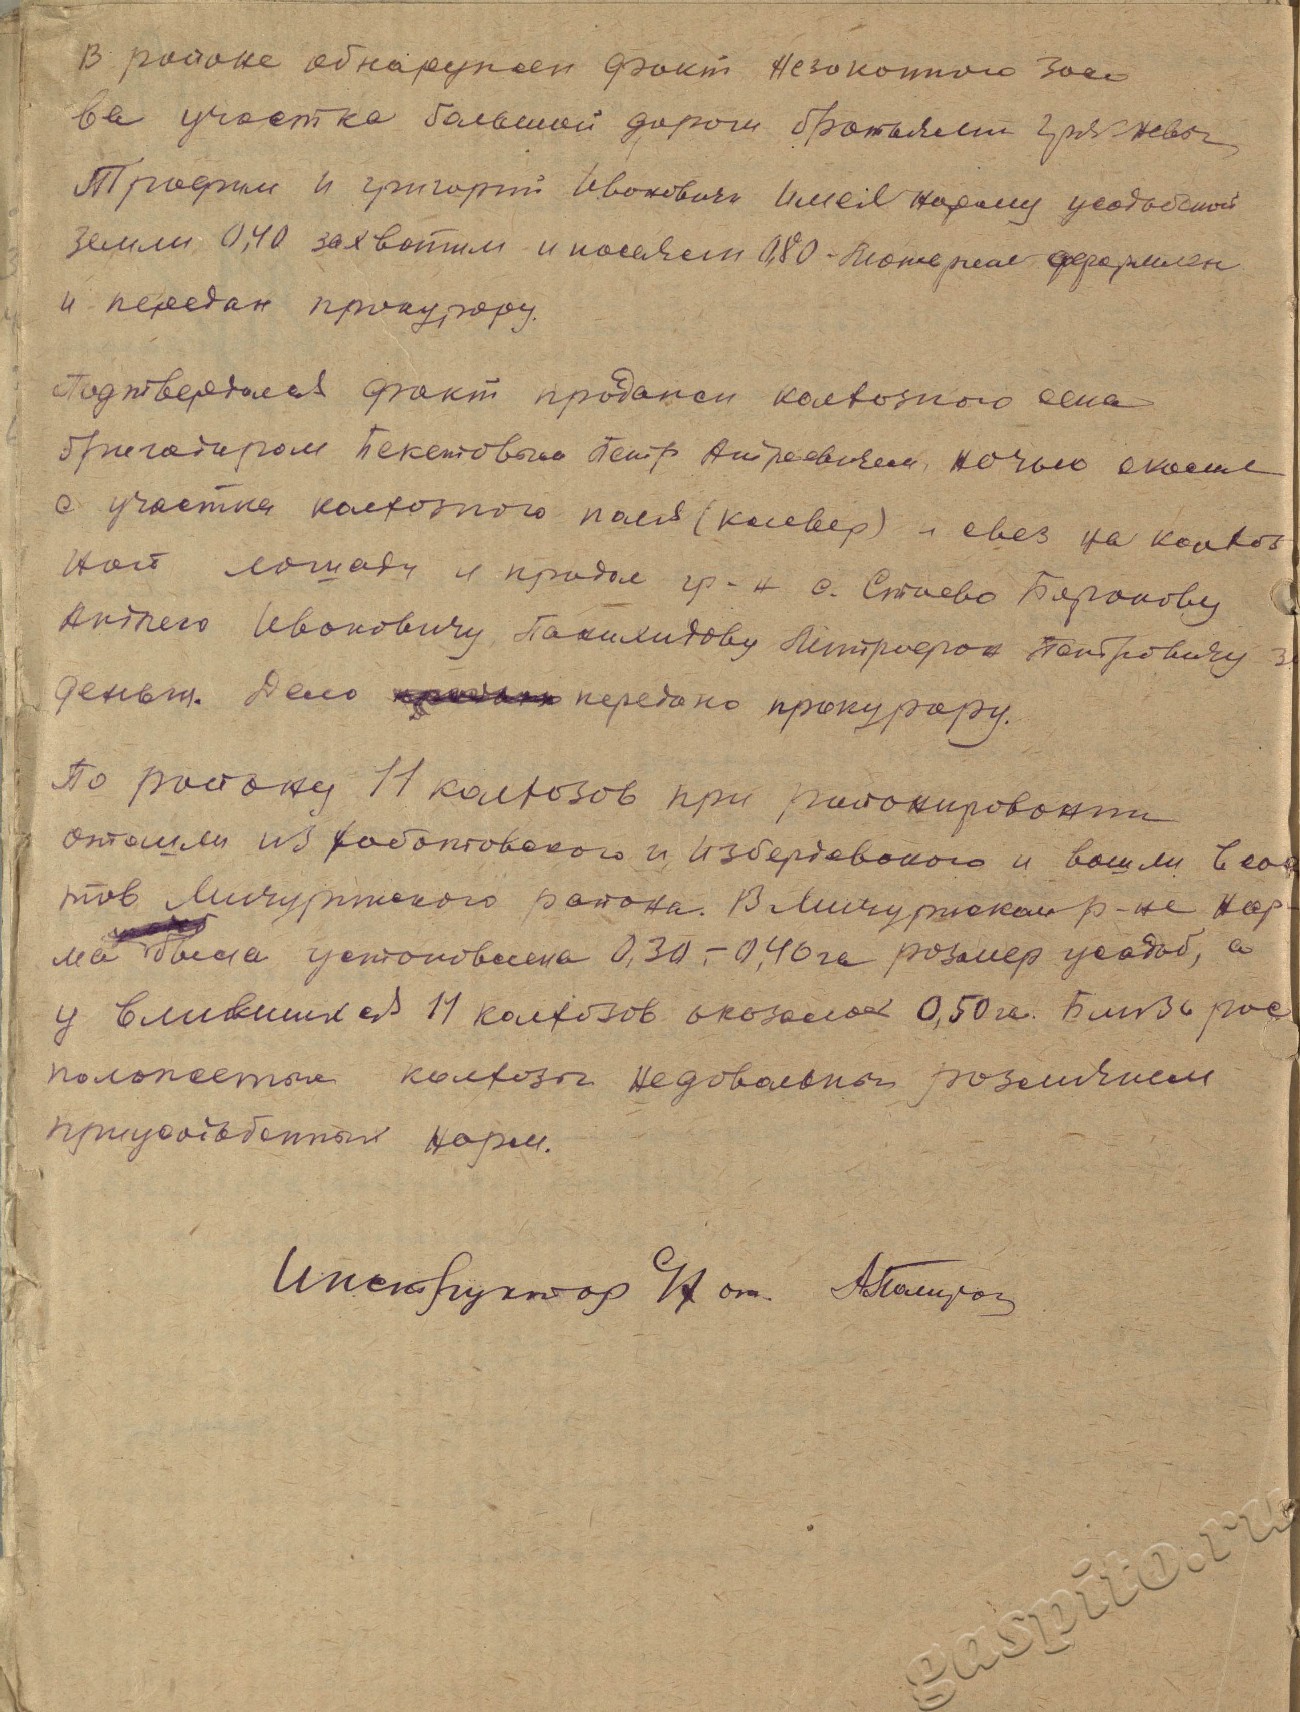 В районе обнаружен факт незаконного засе
ва участка большой дороги братьями Грязневы
Трофим и Григорий Ивановичи имея норму усадебной
земли 0,40 захватили и посеяли 0,80 - Материал оформлен
и передан прокурору.
Подтвердился факт продажи колхозного сена
бригадиром Бекетовым Петр Андреевичем, ночью скосил
с участка колхозного поля (клевер) и свез на колхоз
ной лошади и продал гр-н с. Стаево Баранову
Андрею Ивановичу, Митрофан Петровичу за
деньги. Дело передано прокурору.
По району 11 колхозов при районировании
отошли из Хоботовского и Избердевского и вошли в сос
тов Мичуринского района. В Мичуринском р-не нор-
ма была установлена 0,30 - 0,40 га розмер усадьб, а
у влившихся 11 колхозов оказалась 0,50 га. Близь рас
положенные колхозы недовольны розличием
приусадебных норм.
Инструктор с/х от.
gaspito.ru